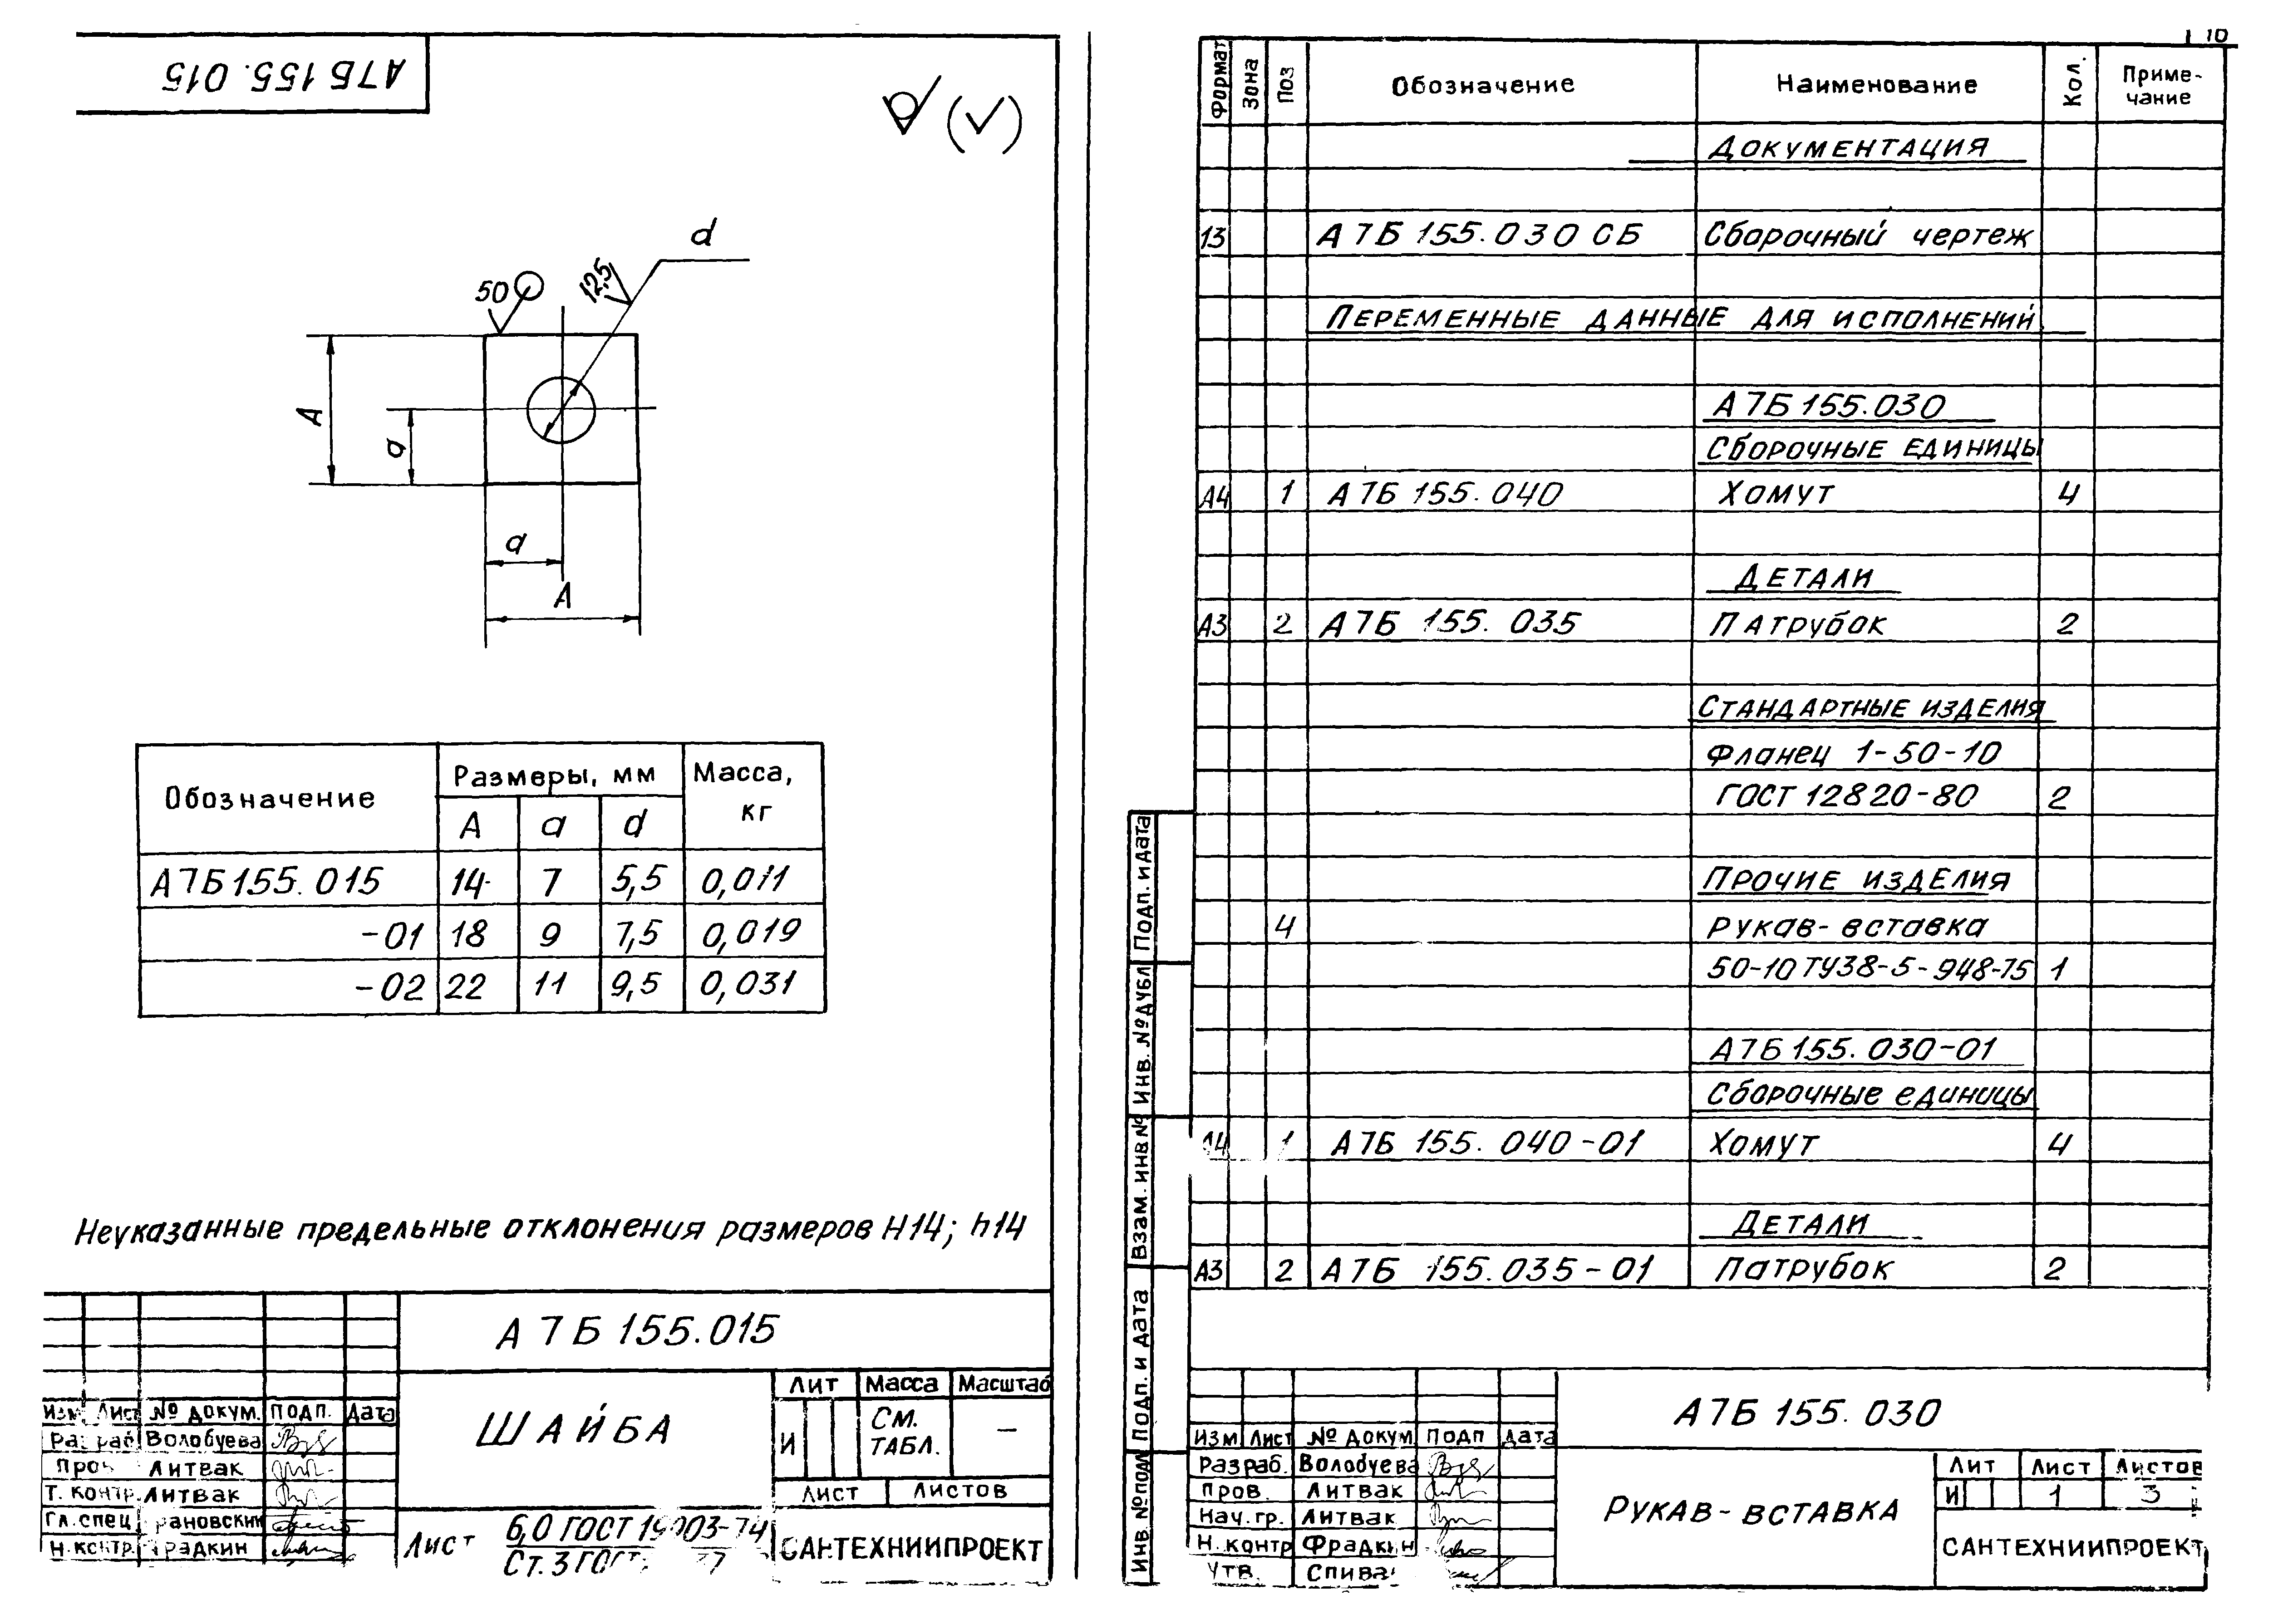 А7Б 155. 015
(√)
d
50
12,5
А
а
а
А
Обозначение Размеры, мм Масса, кг
А а d
А7Б155.015 14 7 5,5 0,011
-01 18 9 7,5 0,019
-02 22 11 9,5 0,031
Неуказанные предельные отклонения размеров Н14; h14
А7Б 155.015
ШАЙБА
Лит Масса Масштаб
И СМ. ТАБЛ. —
Лист Листов
Изм Лист № докум. Подп. Дата
Разраб Волобуева
Пров Литвак
Т. контр. Литвак
Гл. спец
Н. контр.
Лист 6,0 ГОСТ 19903-74
Ст. 3 ГОСТ
САНТЕХНИИПРОЕКТ
10
Формат Зона Поз Обозначение Наименование Кол. Приме-чание
Документация
13 А7Б 155.030 СБ Сборочный чертеж
Переменные данные для исполнений
А7Б155.030
Сборочные единицы
А4 1 А7Б 155.040 Хомут 4
Детали
А3 2 А7Б 155.035 Патрубок 2
Стандартные изделия
Фланец 1-50-10
ГОСТ 12820-80 2
Прочие изделия
4 Рукав-вставка
50-10 ТУ38-5-948-75 1
А7Б155.030-01
Сборочные единицы
А4 1 А7Б 155.040-01 Хомут 4
Детали
А3 2 А7Б 155.035-01 Патрубок 2
Подп. и дата
Инв. № дубл
Взам. инв №
Подп. и дата
Инв. № подл
А7Б 155.030
Изм Лист № докум Подп Дата
Разраб. Волобуева
Пров. Литвак
Нач. гр. Литвак
Н. контр Фрадкин
Утв.
РУКАВ-ВСТАВКА
Лит Лист Листов
И 1 3
САНТЕХНИИПРОЕКТ